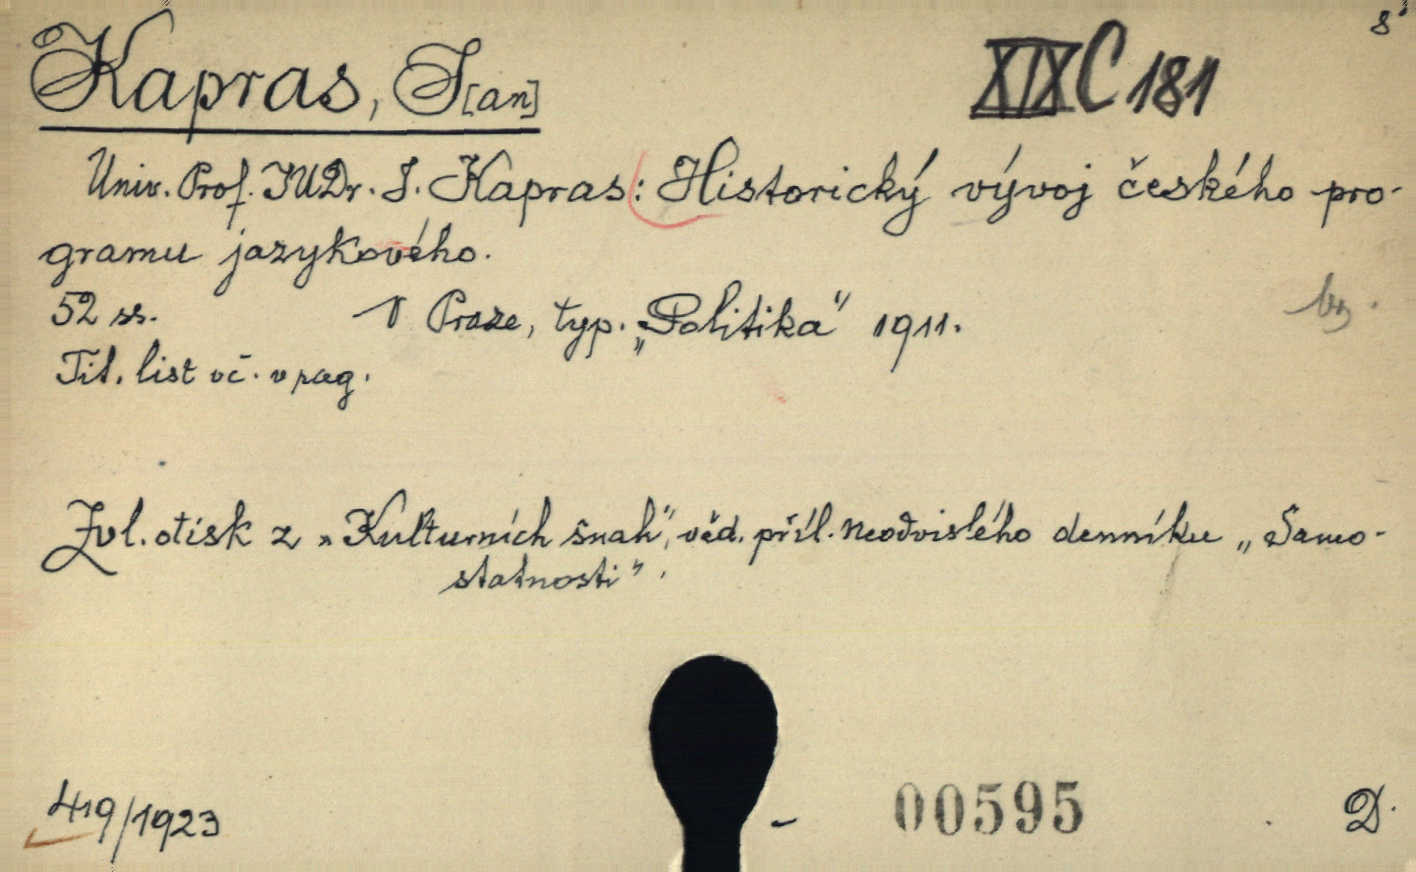 8°
Kapras, J[an]
XIX C 181
Univ. Prof. JUDr. J. Kapras: Historický vývoj českého pro-
gramu jazykového.
52 ss. V Praze, typ. „Politika" 1911.
Tit. list vč. v pag.
Zvl. otisk z „Kulturních snah", věd. příl. Neodvislého denníku „Samo-
statnosti".
419/1923
00595
D.